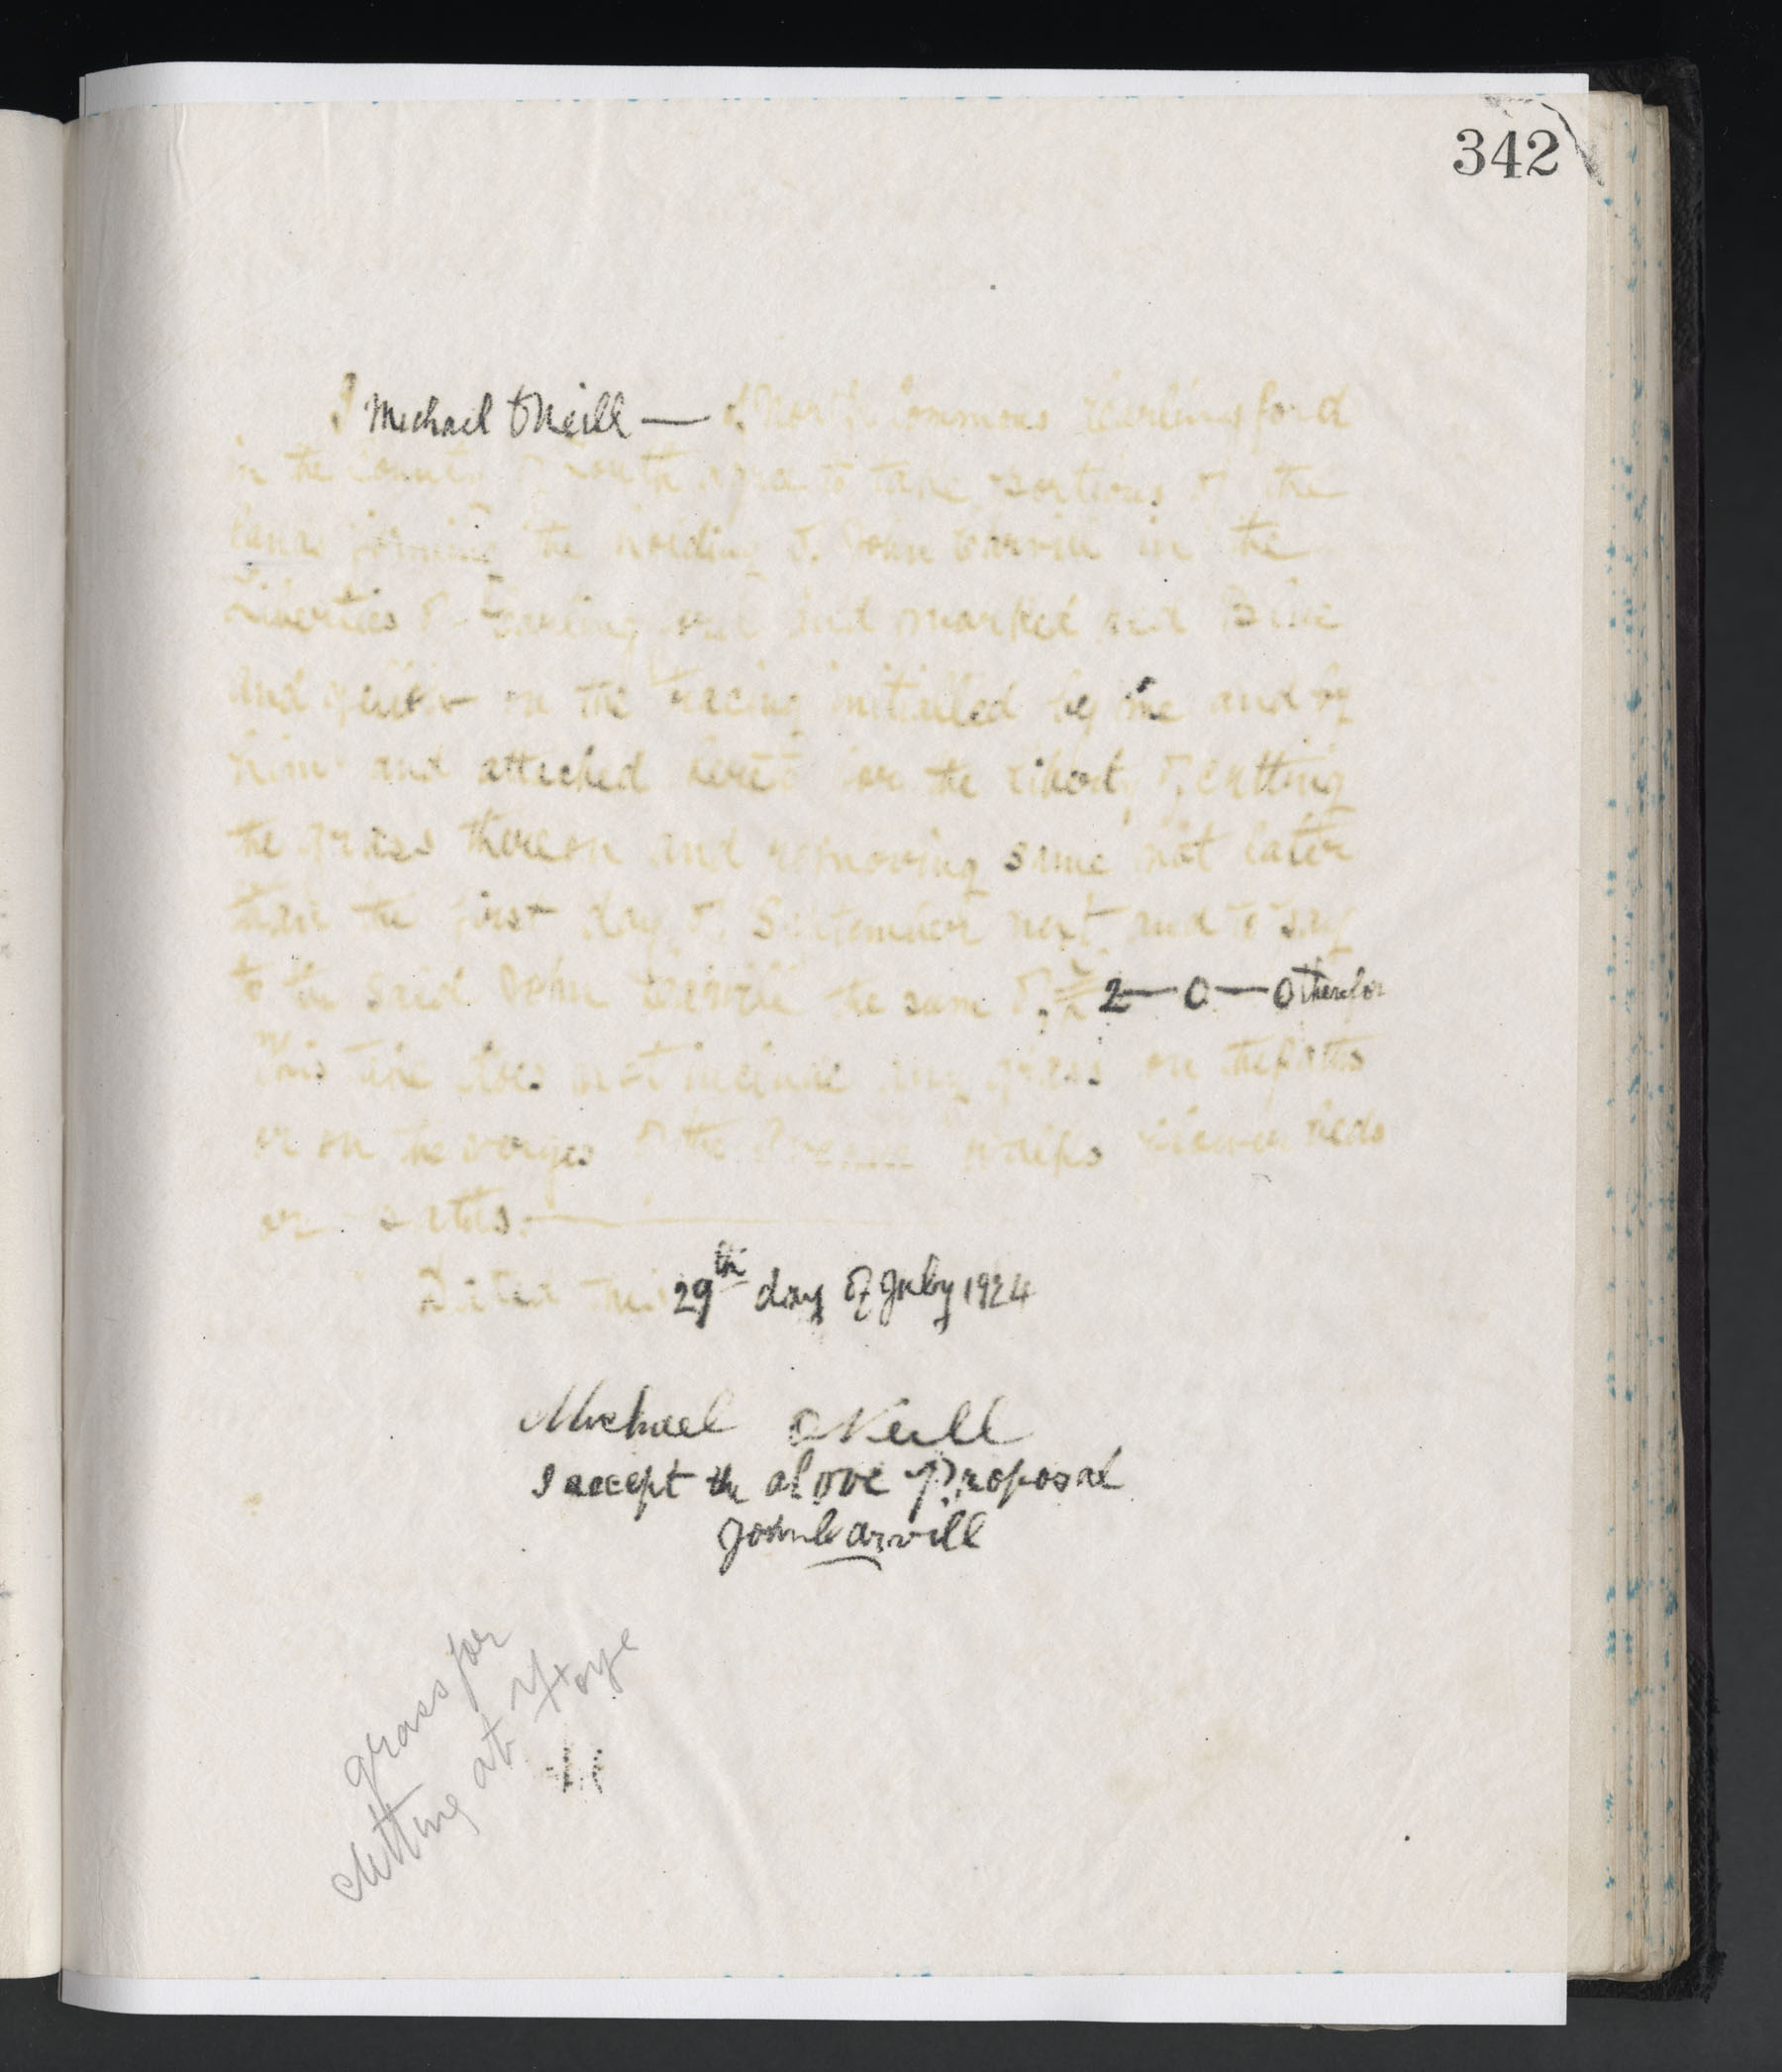 342
I Michael O'Neill — of North Commons Carlingford
in the County of Louth agree to take portions of the
lands forming the holding of John Carvill in the
Liberties of Carlingford and marked red Blue
and yellow on the tracing initialled by me and by
him and attached hereto for the liberty of cutting
the grass thereon and removing same not later
than the first day of September next and to pay
to the said John Carvill the sum of £ 2—0—0 therefor
This take does not include any grass on the paths
or on the verges of the Avenue walks flower beds
or
Dated this 29th day of July 1924
Michael ONeill
I accept the above Proposal
John Carvill
grass for
cutting at